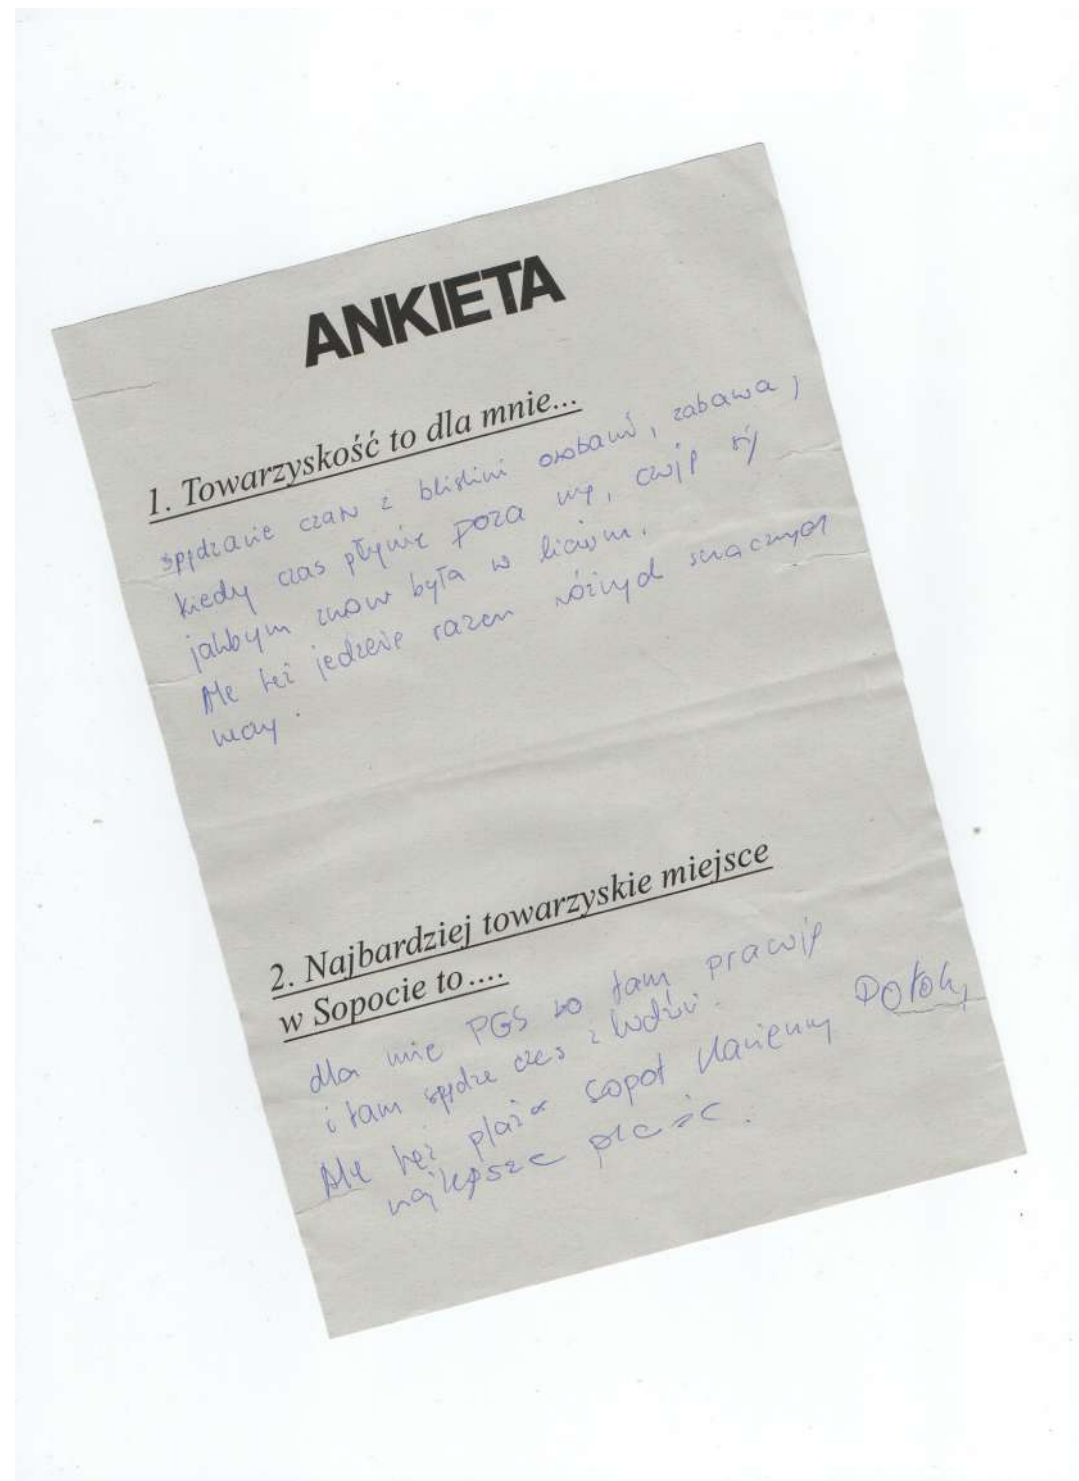 ANKIETA
1. Towarzyskość to dla mnie...
spędzanie czasu z bliskimi osobami, zabawa,
kiedy czas płynie poza mną, czuję się
jakbym znów była w liceum.
Ale też jedzenie razem różnych smacznych
rzeczy.
2. Najbardziej towarzyskie miejsce
w Sopocie to....
dla mnie PGS bo tam pracuję
i tam spędzam czas z ludźmi.
Ale też plaża Sopot Kamienny Potok,
najlepsze